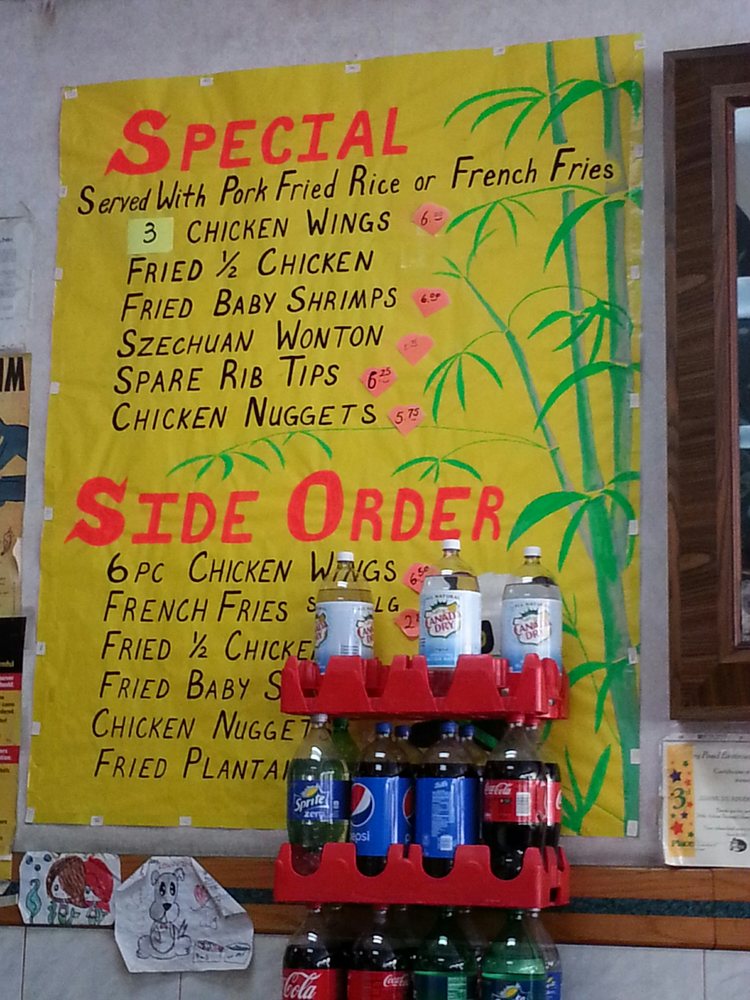 SPECIAL
Served With Pork Fried Rice or French Fries
3 CHICKEN WINGS 6.
FRIED ½ CHICKEN
FRIED BABY SHRIMPS 6.00
SZECHUAN WONTON
SPARE RIB TIPS 6.25
CHICKEN NUGGETS 5.75
SIDE ORDER
6 PC CHICKEN WINGS
FRENCH FRIES LG 2
FRIED ½ CHICKE
FRIED BABY S
CHICKEN NUGGET
FRIED PLANTAI
CANADA DRY
CANADA DRY
Sprite zero
pepsi
Coca-Cola
Coca-Cola
Coca-Cola
3rd Place